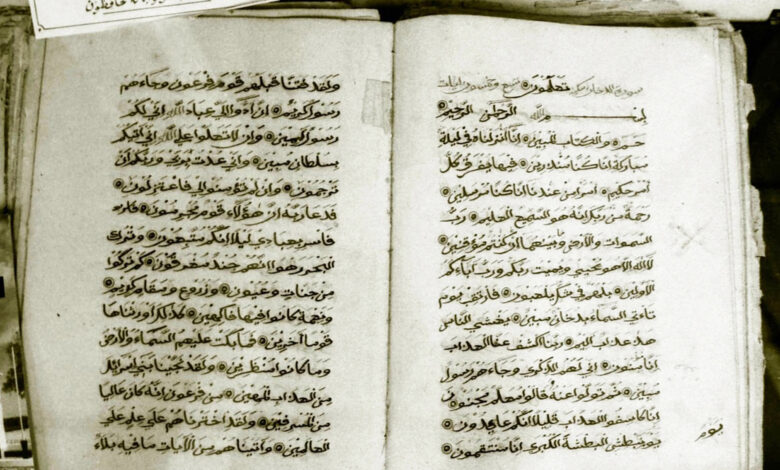 حافظون
سورة الدخان تعلمون
بسم الله الرحمن الرحيم
حم۝ والكتاب المبين۝ انا انزلناه في ليلة
مباركة انا كنا منذرين۝ فيها يفرق كل
امر حكيم۝ امرا من عندنا انا كنا مرسلين۝
رحمة من ربك انه هو السميع العليم۝ رب
السموات والارض وما بينهما ان كنتم موقنين۝
لا اله الا هو يحيي ويميت ربكم ورب ابائكم
الاولين۝ بل هم في شك يلعبون۝ فارتقب يوم
تاتي السماء بدخان مبين۝ يغشى الناس
هذا عذاب اليم۝ ربنا اكشف عنا العذاب
انا مومنون۝ انى لهم الذكرى وجاءهم رسول
مبين۝ ثم تولوا عنه قالوا معلم مجنون۝
انا كاشفوا العذاب قليلا انكم عايدون۝
يوم نبطش البطشة الكبرى انا منتقمون۝
يوم
ولقد فتنا قبلهم قوم فرعون وجاءهم
رسول كريم۝ ان ادوا الي عباد الله اني لكم
رسول امين۝ وان لا تعلوا على الله اني اتيكم
بسلطان مبين۝ واني عذت بربي وربكم ان
ترجمون۝ وان لم تومنوا لي فاعتزلون۝
فدعا ربه ان هؤلاء قوم مجرمون۝ فاسر
فاسر بعبادي ليلا انكم متبعون۝ واترك
البحر رهوا انهم جند مغرقون۝ كم تركوا
من جنات وعيون۝ وزروع ومقام كريم۝
ونعمة كانوا فيها فاكهين۝ كذلك واورثناها
قوما اخرين۝ فما بكت عليهم السماء والارض
وما كانوا منظرين۝ ولقد نجينا بني اسرائل
من العذاب المهين۝ من فرعون انه كان عاليا
من المسرفين۝ ولقد اخترناهم على علم على
العالمين۝ واتيناهم من الآيات ما فيه بلاء